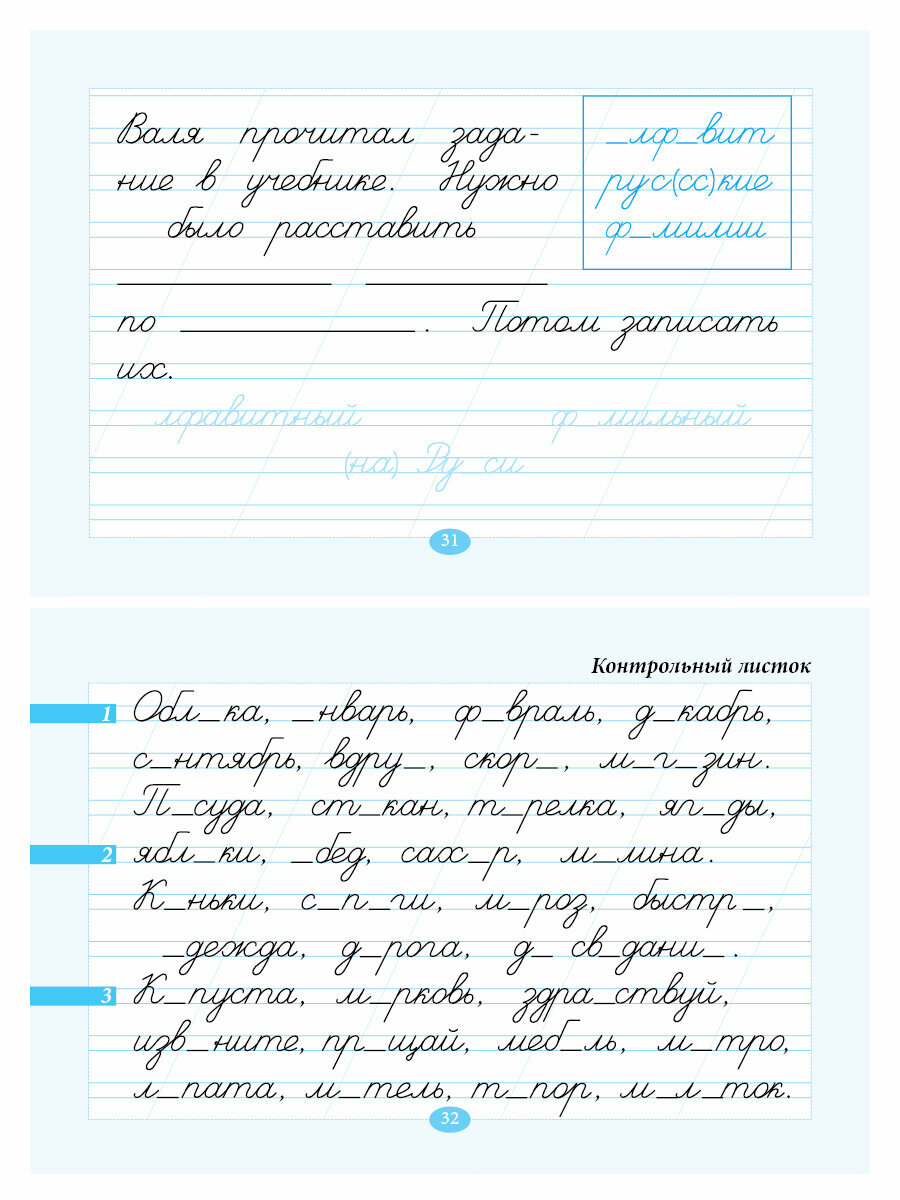 Валя прочитал зада-
ние в учебнике. Нужно
было расставить
_лф_вит
рус(сс)кие
ф_милии
_____ _____
по _____. Потом записать
их.
_лфавитный ф_мильный
(на) Ру си
31
Контрольный листок
1 Обл_ка, _нварь, ф_враль, д_кабрь,
с_нтябрь, вдру_, скор_, м_г_зин.
П_суда, ст_кан, т_релка, яг_ды,
2 ябл_ки, _бед, сах_р, м_лина.
К_ньки, с_п_ги, м_роз, быстр_,
_дежда, д_рога, д_ св_дани_.
3 К_пуста, м_рковь, здра_ствуй,
изв_ните, пр_щай, меб_ль, м_тро,
л_пата, м_тель, т_пор, м_л_ток.
32